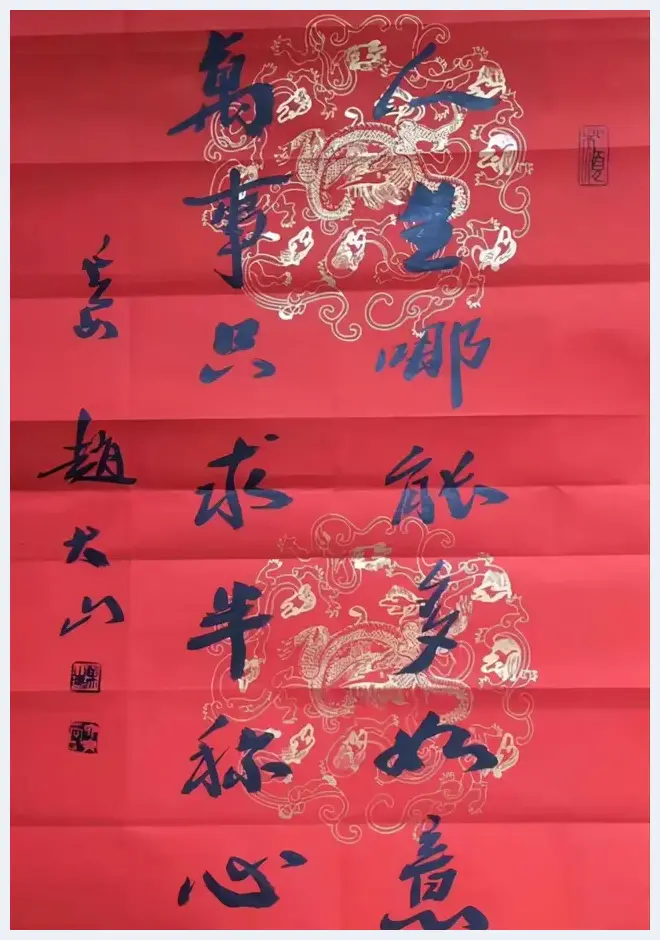 人生哪能多如意
萬事只求半称心
趙大山